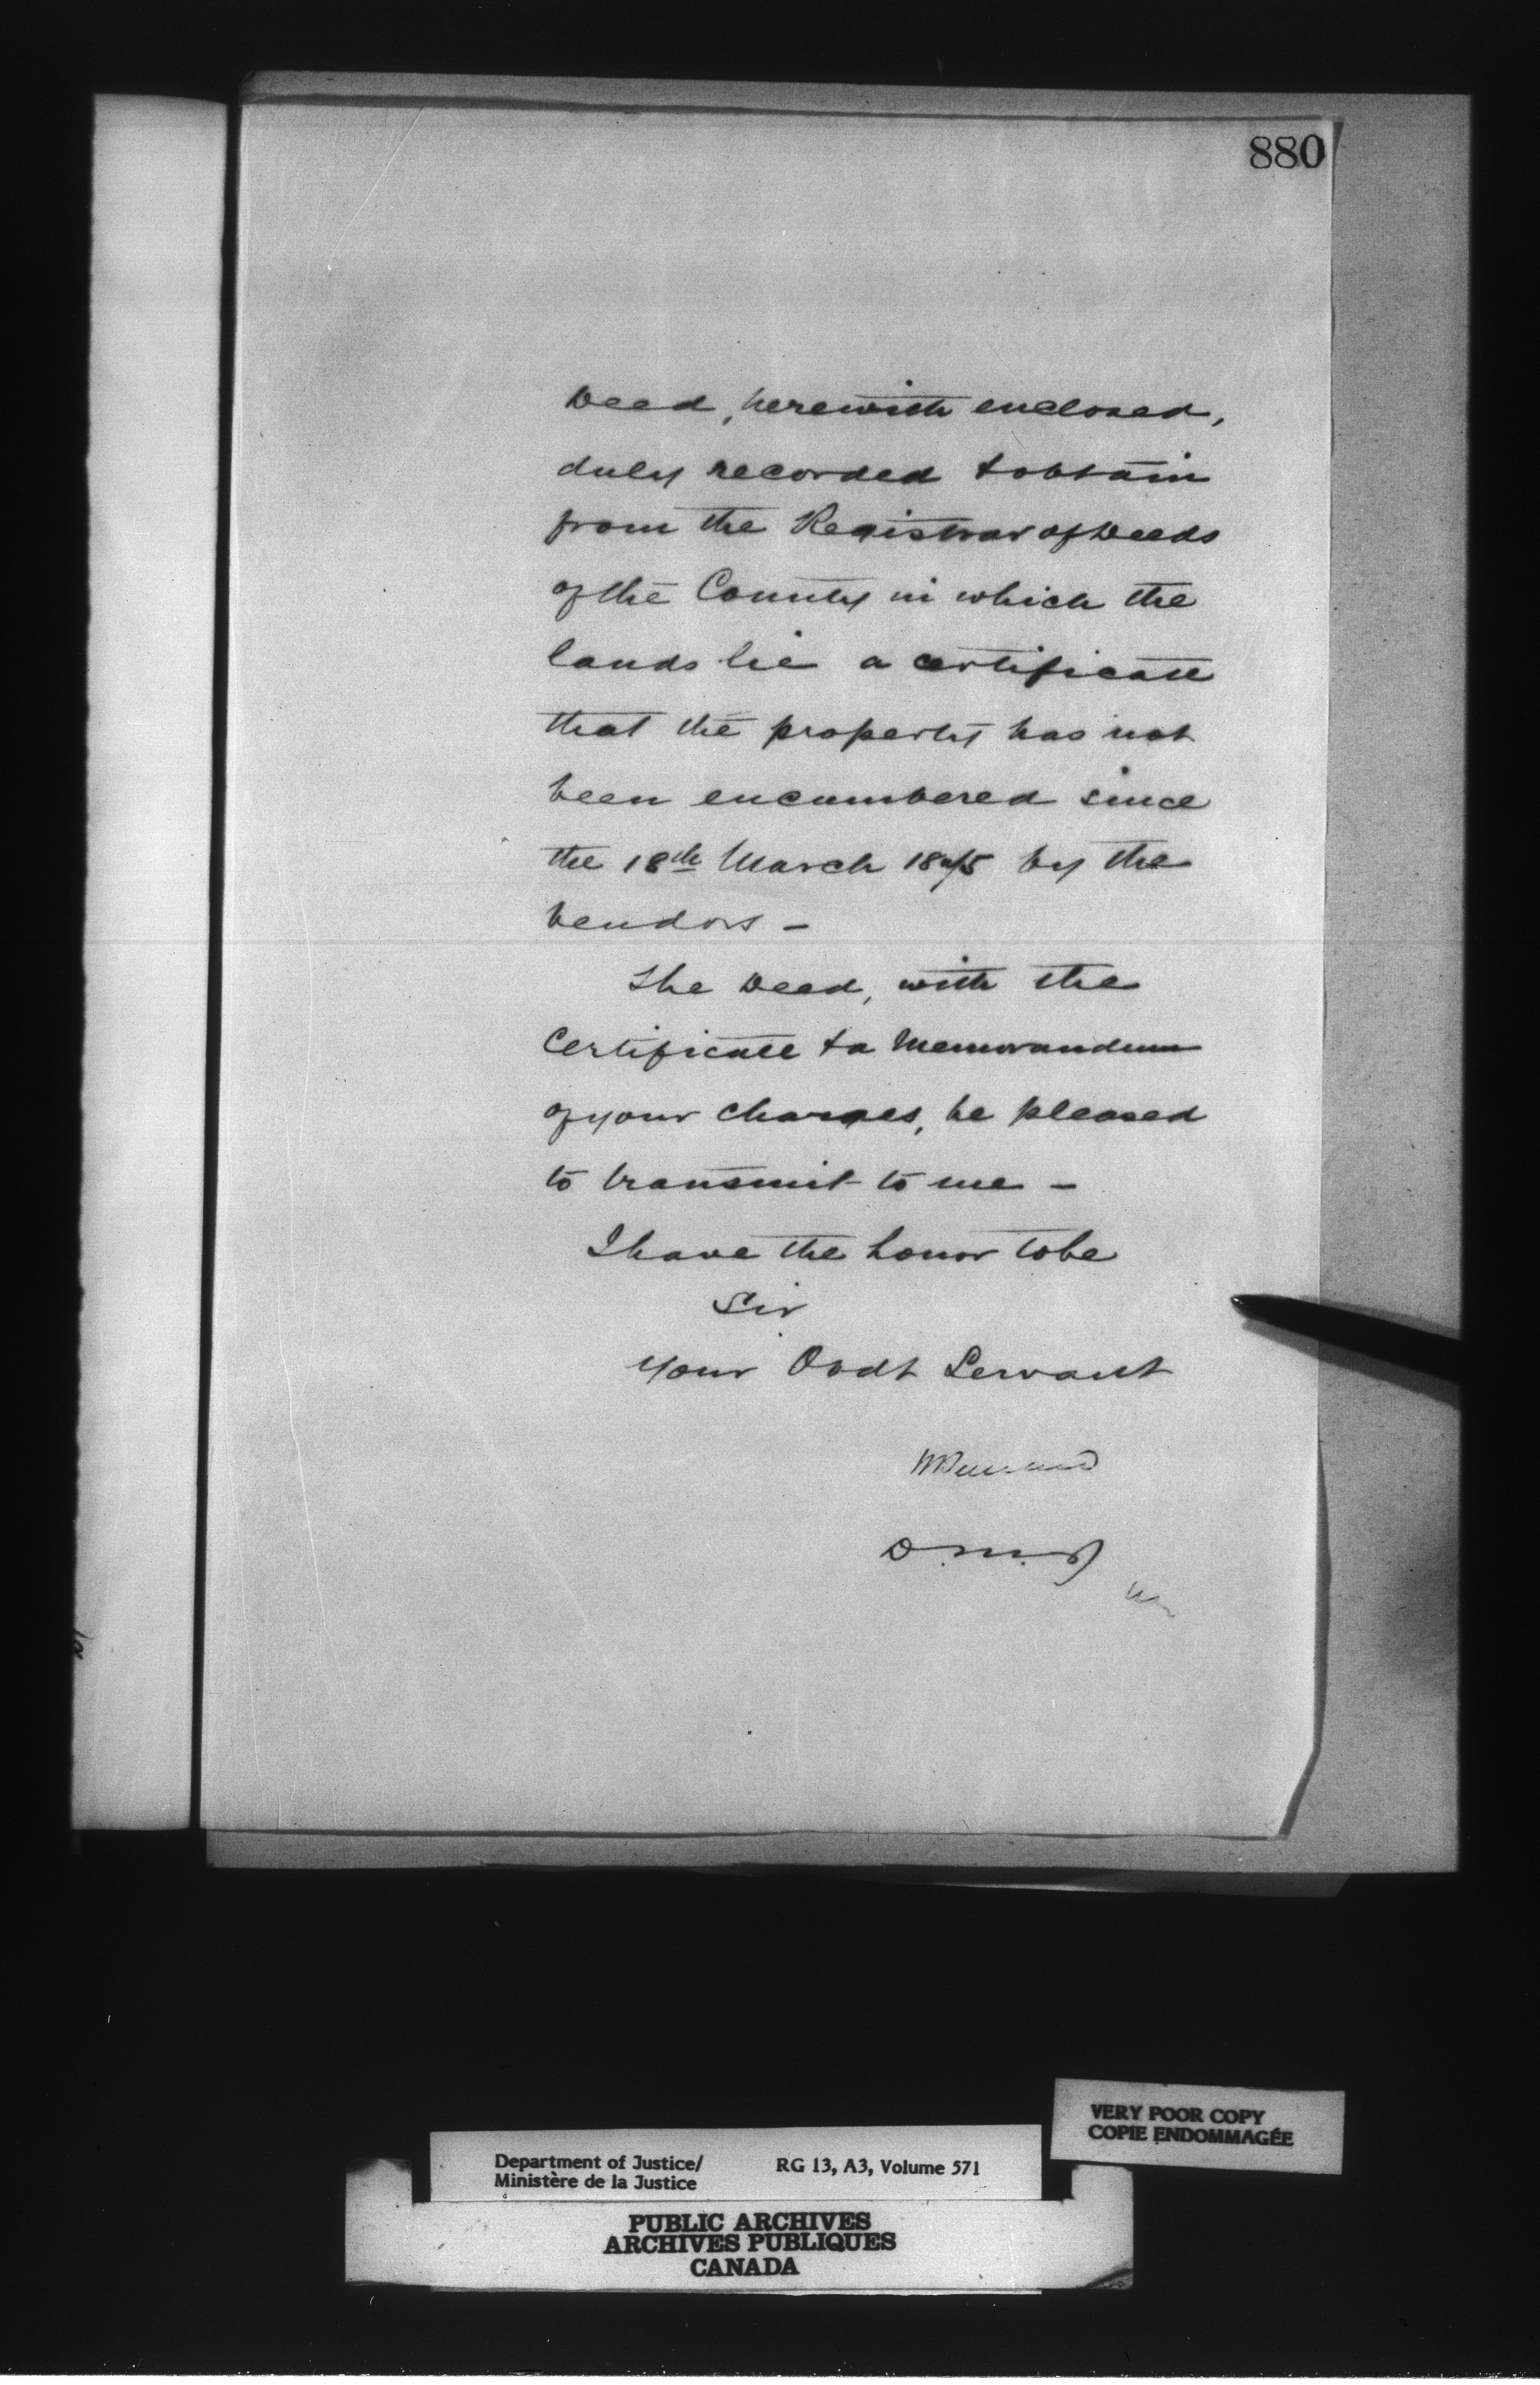 880
Deed, herewith enclosed,
duly recorded & obtain
from the Registrar of Deeds
of the County in which the
lands lie a certificate
that the property has not
been encumbered since
the 18th March 1875 by the
vendors -
The Deed, with the
Certificate & a Memorandum
of your charges, be pleased
to transmit to me -
I have the honor to be
Sir
Your Obdt Servant
D.M.J
VERY POOR COPY
COPIE ENDOMMAGÉE
Department of Justice/ RG 13, A3, Volume 571
Ministère de la Justice
PUBLIC ARCHIVES
ARCHIVES PUBLIQUES
CANADA